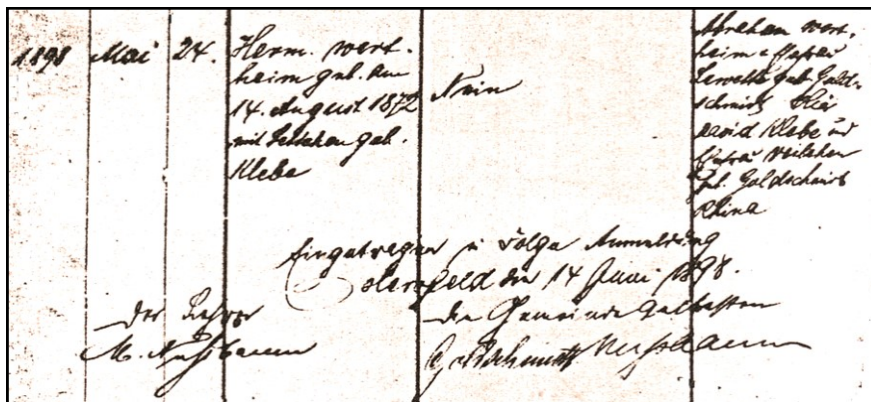 1898 Mai 24.
Herm. Wert-
heim geb. am
14. August 1872
mit geb.
Klebe
Nein
Abraham Wert-
heim Ehefrau
geb. Gold-
schmidt
David Klebe und
Ehefrau Veilchen
geb. Goldschmidt
Rhina
Eingetragen Folge Anmeldung
Hersfeld den 14 Juni 1898.
Der Lehrer
M. Nußbaum
Die Gemeinde Ältesten
Goldschmidt Nussbaum